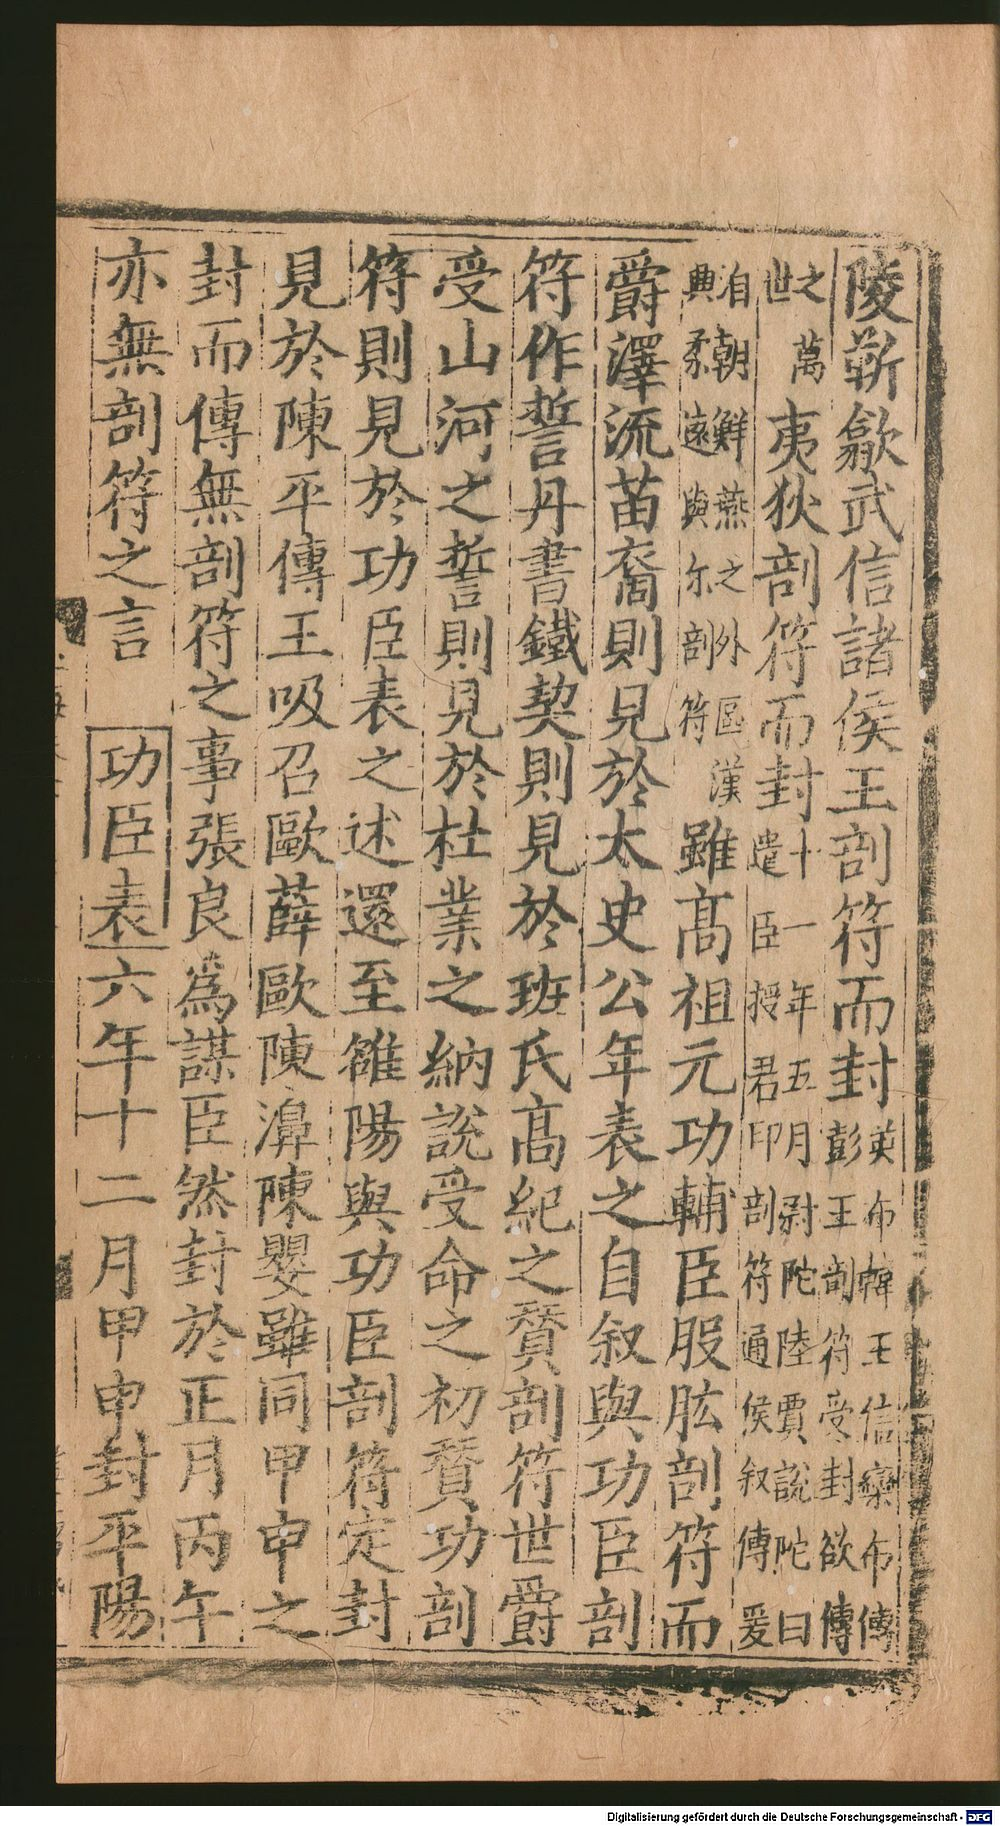 陵蘄歙武信諸侯王剖符而封英布韓王信欒布傳
彭王剖符受封欲傳
之萬
世夷狄剖符而封十一年五月尉陀陸賈說陀曰
遣臣授君印剖符通侯叙傳爰
自朝鮮燕之外區漢
興柔遠與尔剖符雖髙祖元功輔臣股肱剖符而
爵澤流苗裔則見於太史公年表之自叙與功臣剖
符作誓丹書鐵契則見於班氏髙紀之贊剖符世爵
受山河之誓則見於杜業之納說受命之初贊功剖
符則見於功臣表之述還至雒陽與功臣剖符定封
見於陳平傳王吸召歐薛歐陳濞陳嬰雖同甲申之
封而傳無剖符之事張良為謀臣然封於正月丙午
亦無剖符之言 功臣表六年十二月甲申封平陽
Digitalisierung gefördert durch die Deutsche Forschungsgemeinschaft - DFG